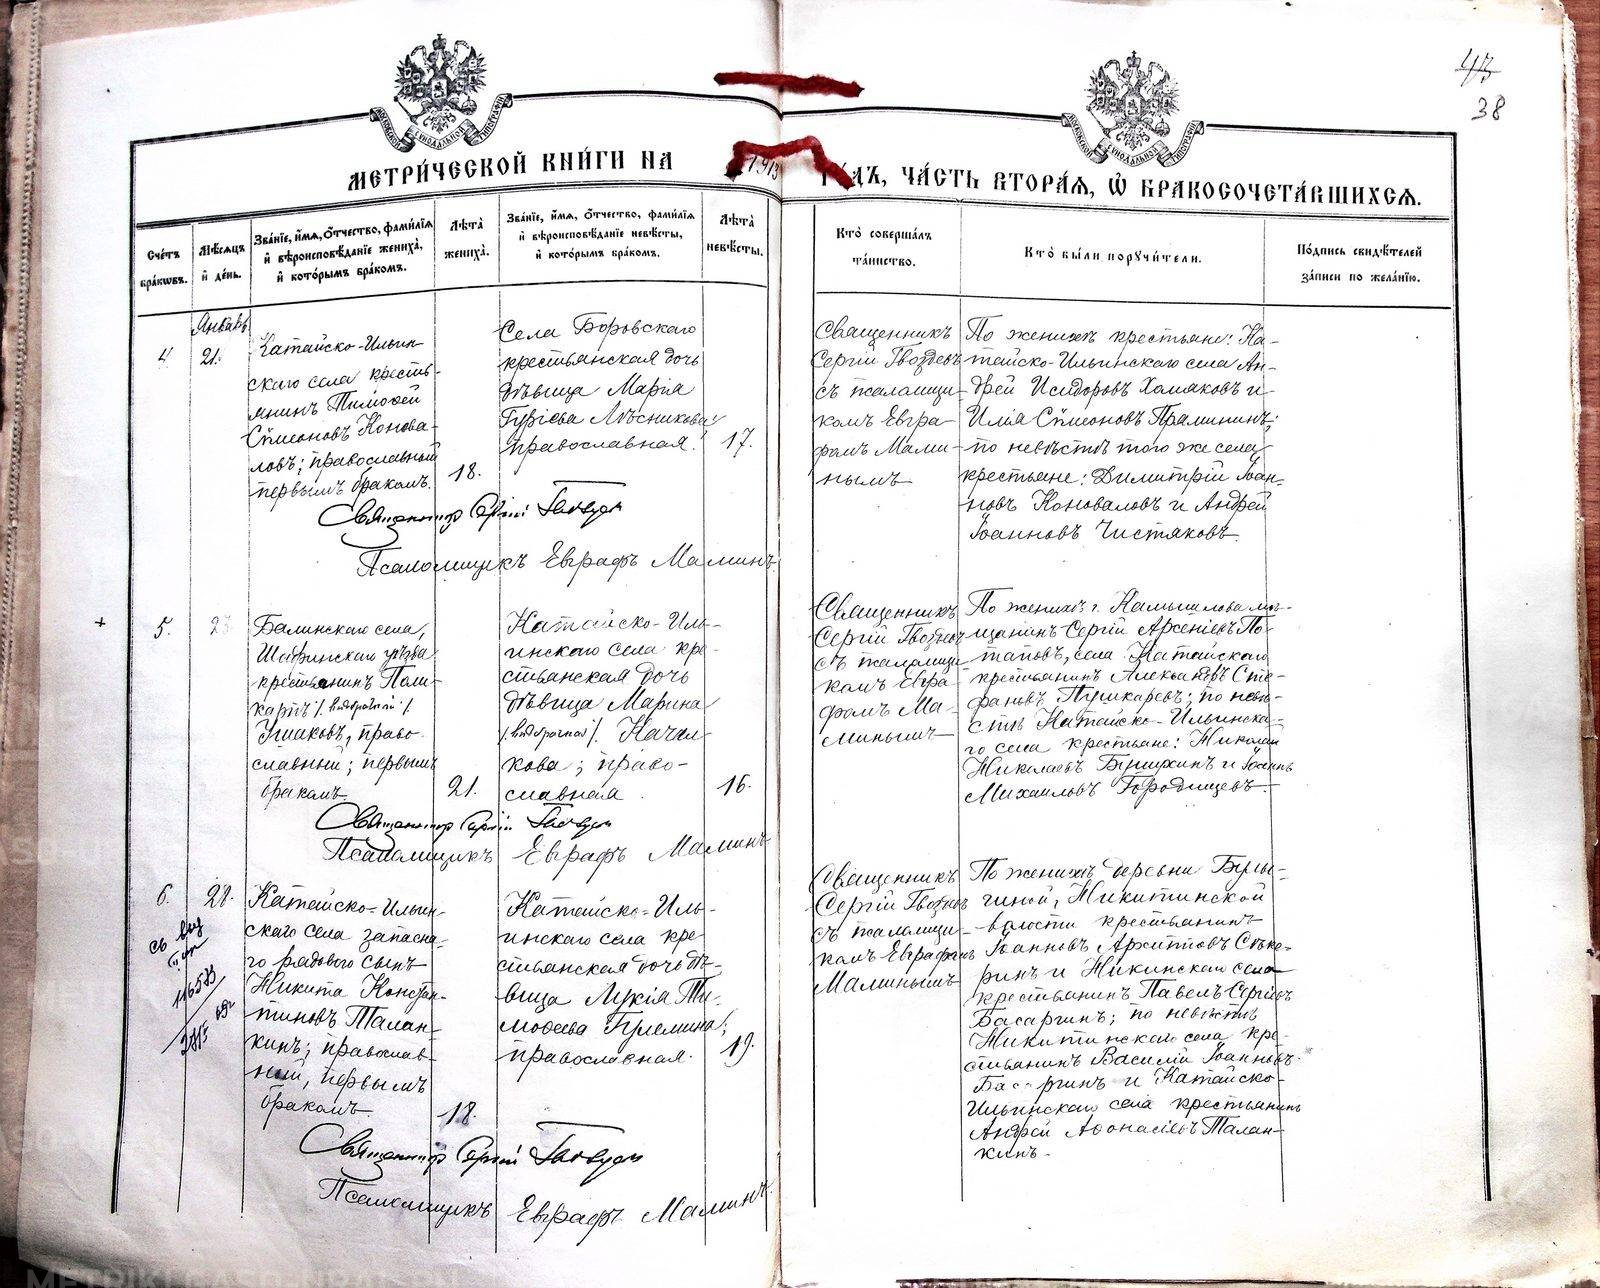 43
38
МОСКОВСКОЙ СѴНОДАЛЬНОЙ ТИПОГРАФІИ
МОСКОВСКОЙ СѴНОДАЛЬНОЙ ТИПОГРАФІИ
МЕТРИ́ЧЕСКОЙ КНИ́ГИ НА 1913 ГО́ДЪ, ЧА́СТЬ ВТОРА́Я, Ѽ БРАКОСОЧЕТА́ВШИХСЯ.
Сче́тъ бра́кѡвъ.
Мѣ́сяцъ и́ де́нь.
Зва́ніе, и́мя, ѻ҆́тчество, фами́лія и́ вѣроисповѣ́даніе жениха̀, и́ кото́рымъ бра́комъ.
Лѣ́та̀ жениха̀.
Зва́ніе, и́мя, ѻ҆́тчество, фами́лія и́ вѣроисповѣ́даніе невѣ́сты, и́ кото́рымъ бра́комъ.
Лѣ́та̀ невѣ́сты.
Кто̀ соверша́лъ та́инство.
Кто̀ бы́ли порꙋчи́тели.
По́дпись свидѣ́телей за́писи по жела́нію.
Январь
4
21.
Катайско-Ильин-
скаго села кресть-
янинъ Тимоѳей
Сѵмеоновъ Конова-
ловъ; православный
первымъ бракомъ.
18.
Села Боровскаго
крестьянская дочь
дѣвица Марія
Гуріева Лѣсникова
православная.
17.
Священникъ
Сергій Гвоздевъ
съ псаломщи-
комъ Евгра-
фомъ Мами-
нымъ
По женихѣ крестьяне: Ка-
тайско-Ильинскаго села Ан-
дрей Исидоровъ Хомяковъ и
Илія Сѵмеоновъ Прамининъ;
по невѣстѣ того же села
крестьяне: Димитрій Іоан-
новъ Коноваловъ и Андрей
Іоанновъ Чистяковъ.
Священникъ Сергій Гвоздевъ
Псаломщикъ Евграфъ Маминъ.
+
5.
Балинскаго села,
Шадринскаго уѣзда
крестьянинъ Поли-
карпъ /. внѣбрачный /.
Ушаковъ, право-
славный; первымъ
бракомъ
21.
Катайско-Иль-
инскаго села кре-
стьянская дочь
дѣвица Марина
/. внѣбрачная /. Качал-
кова; право-
славная.
16.
Священникъ
Сергій Гвоздевъ
съ псаломщи-
комъ Евгра-
фомъ Ма-
минымъ
По женихѣ г. Камышлова мѣ-
щанинъ Сергій Арсеніевъ По-
таповъ, села Катайскаго
крестьянинъ Александръ Сте-
фановъ Пушкаревъ; по невѣ-
стѣ Катайско-Ильинска-
го села крестьяне: Николай
Николаевъ Бушухинъ и Іоаннъ
Михаиловъ Городищевъ.
Священникъ Сергій Гвоздевъ
Псаломщикъ Евграфъ Маминъ
6.
28.
116573
Катайско-Ильин-
скаго села запасна-
го рядового сынъ
Никита Констан-
тиновъ Талан-
кинъ; православ-
ный, первымъ
бракомъ
18.
Катайско-Иль-
инскаго села кре-
стьянская дочь дѣ-
вица Лукія Ти-
моѳеева Гулемина;
православная.
19.
Священникъ
Сергій Гвоздевъ
съ псаломщи-
комъ Евграфомъ
Маминымъ
По женихѣ деревни Булы-
гиной, Никитинской
волости крестьянинъ
Іоанновъ Архиповъ Секе-
ринъ и Никинскаго села
крестьянинъ Павелъ Сергіевъ
Басаргинъ; по невѣстѣ
Никитинскаго села кре-
стьянинъ Василій Іоанновъ
Басаргинъ и Катайско-
Ильинскаго села крестьянинъ
Андрей Аѳонасіевъ Талан-
кинъ.
Священникъ Сергій Гвоздевъ
Псаломщикъ Евграфъ Маминъ.